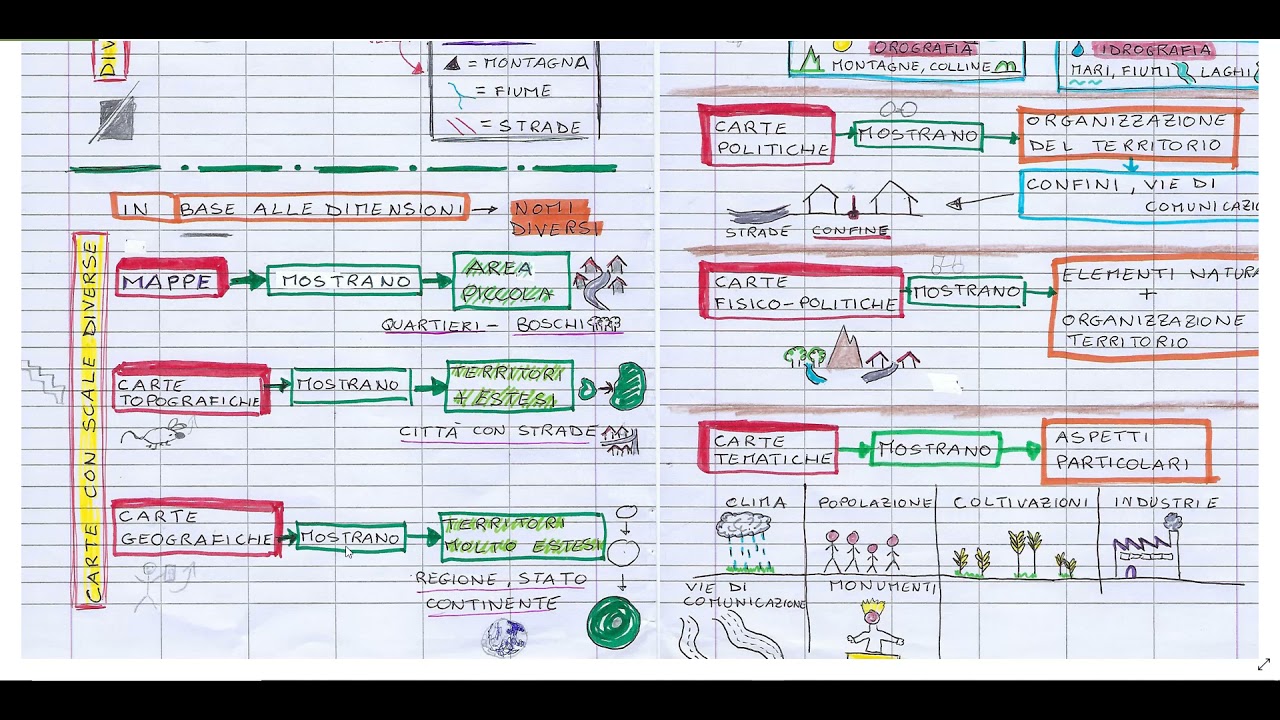 = MONTAGNA
= FIUME
= STRADE
IN BASE ALLE DIMENSIONI → NOMI
DIVERSI
CARTE CON SCALE DIVERSE
MAPPE
MOSTRANO
AREA
PICCOLA
QUARTIERI - BOSCHI
CARTE
TOPOGRAFICHE
MOSTRANO
TERRITORI
+ ESTESI
CITTÀ CON STRADE
CARTE
GEOGRAFICHE
MOSTRANO
TERRITORI
MOLTO ESTESI
REGIONE, STATO
CONTINENTE
OROGRAFIA
MONTAGNE, COLLINE
IDROGRAFIA
MARI, FIUMI LAGHI
CARTE
POLITICHE
MOSTRANO
ORGANIZZAZIONE
DEL TERRITORIO
CONFINI, VIE DI
COMUNICAZIO
STRADE CONFINE
CARTE
FISICO-POLITICHE
MOSTRANO
ELEMENTI NATURA
+
ORGANIZZAZIONE
TERRITORIO
CARTE
TEMATICHE
MOSTRANO
ASPETTI
PARTICOLARI
CLIMA POPOLAZIONE COLTIVAZIONI INDUSTRIE
VIE DI
COMUNICAZIONE
MONUMENTI